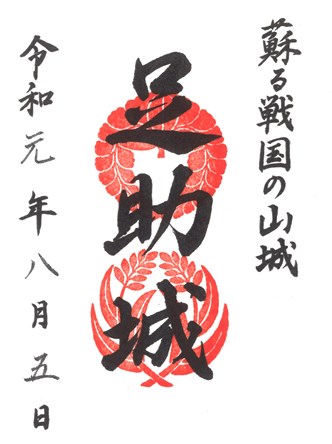 蘇る戦国の山城
足助城
令和元年八月五日